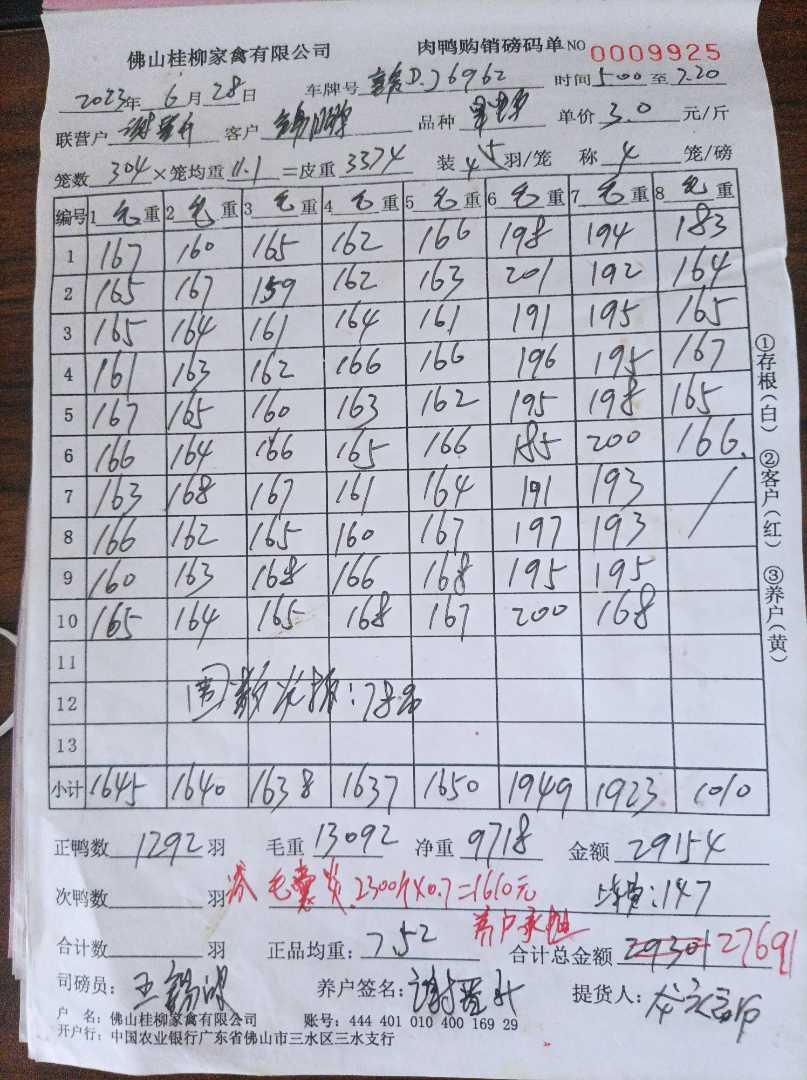 佛山桂柳家禽有限公司 肉鸭购销磅码单 NO 0009925
2023年 6 月 28 日 车牌号 D J6962 时间 5:00 至 7.20
联营户 客户 品种 单价 3.0 元/斤
笼数 304 × 笼均重 11.1 = 皮重 3374 装 4.5 羽/笼 称 4 笼/磅
编号 1 毛 重 2 毛 重 3 毛 重 4 毛 重 5 毛 重 6 毛 重 7 毛 重 8 毛 重
1 167 160 165 162 166 198 194 183
2 165 167 159 162 163 201 192 164
3 165 164 161 164 161 191 195 165
4 161 163 162 166 166 196 195 167
5 167 165 160 163 162 195 198 165
6 166 164 166 165 166 185 200 166
7 163 168 167 161 164 191 193
8 166 162 165 160 167 197 193
9 160 163 168 166 168 195 195
10 165 164 165 168 167 200 168
11
12 :78%
13
小计 1645 1640 1638 1637 1650 1949 1923 1010
正鸭数 1292 羽 毛重 13092 净重 9718 金额 29154
次鸭数 羽 毛囊炎 2300斤×0.7=1610元 上车费:147
养户承担
合计数 羽 正品均重: 7.52 合计总金额 29301 27691
司磅员: 养户签名: 提货人:
户 名: 佛山桂柳家禽有限公司 账号: 444 401 010 400 169 29
开户行: 中国农业银行广东省佛山市三水区三水支行
①存根(白) ②客户(红) ③养户(黄)